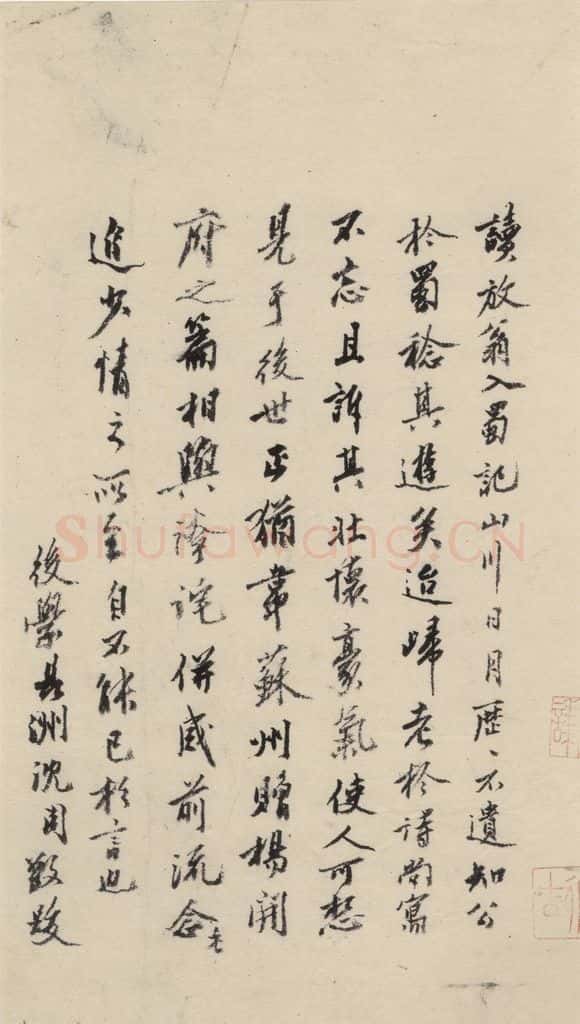 讀放翁入蜀記山川日月歷々不遺知公
於蜀稔其遊矣迨歸老於詩尚寫
不忘且訴其壯懷豪氣使人可想
見于後世正猶韋蘇州贈楊開
府之篇相與誇詫併感前流念老
追少情之所至自不能已於言也
後學長洲沈周敬跋
ShufaWang.CN